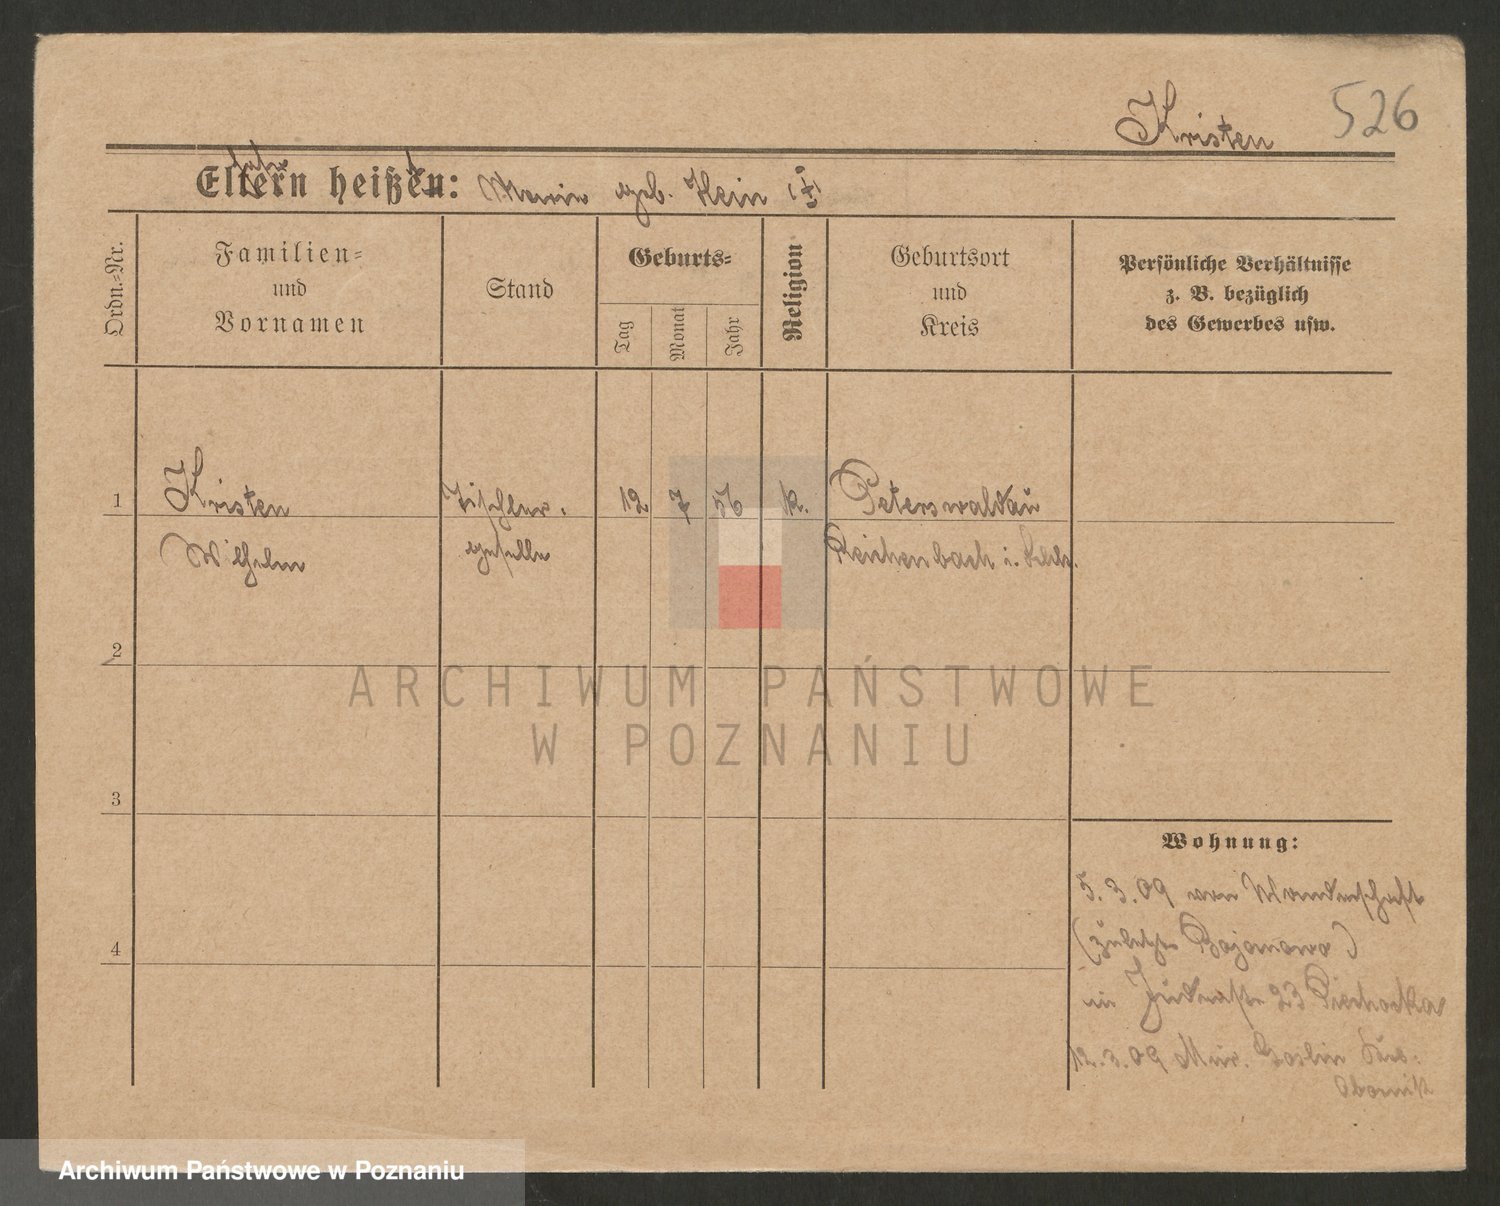 Kristen 526
Eltern heißen: Maria geb. Klein (†)
Ordn.-Nr.
Familien-
und
Vornamen
Stand
Geburts-
Tag
Monat
Jahr
Religion
Geburtsort
und
Kreis
Persönliche Verhältnisse
z. B. bezüglich
des Gewerbes usw.
1 Kristen Tischler- 12 7 56 k. Peterswaldau
Wilhelm geselle Reichenbach i. Schls.
2
3
4
Wohnung:
5.3.09 von Wanderschaft
(zuletzt Bojanowo)
in Judenstr 23 Piechocka
12.3.09 Mur. Goslin Krs.
Obornik
ARCHIWUM PAŃSTWOWE
W POZNANIU
Archiwum Państwowe w Poznaniu